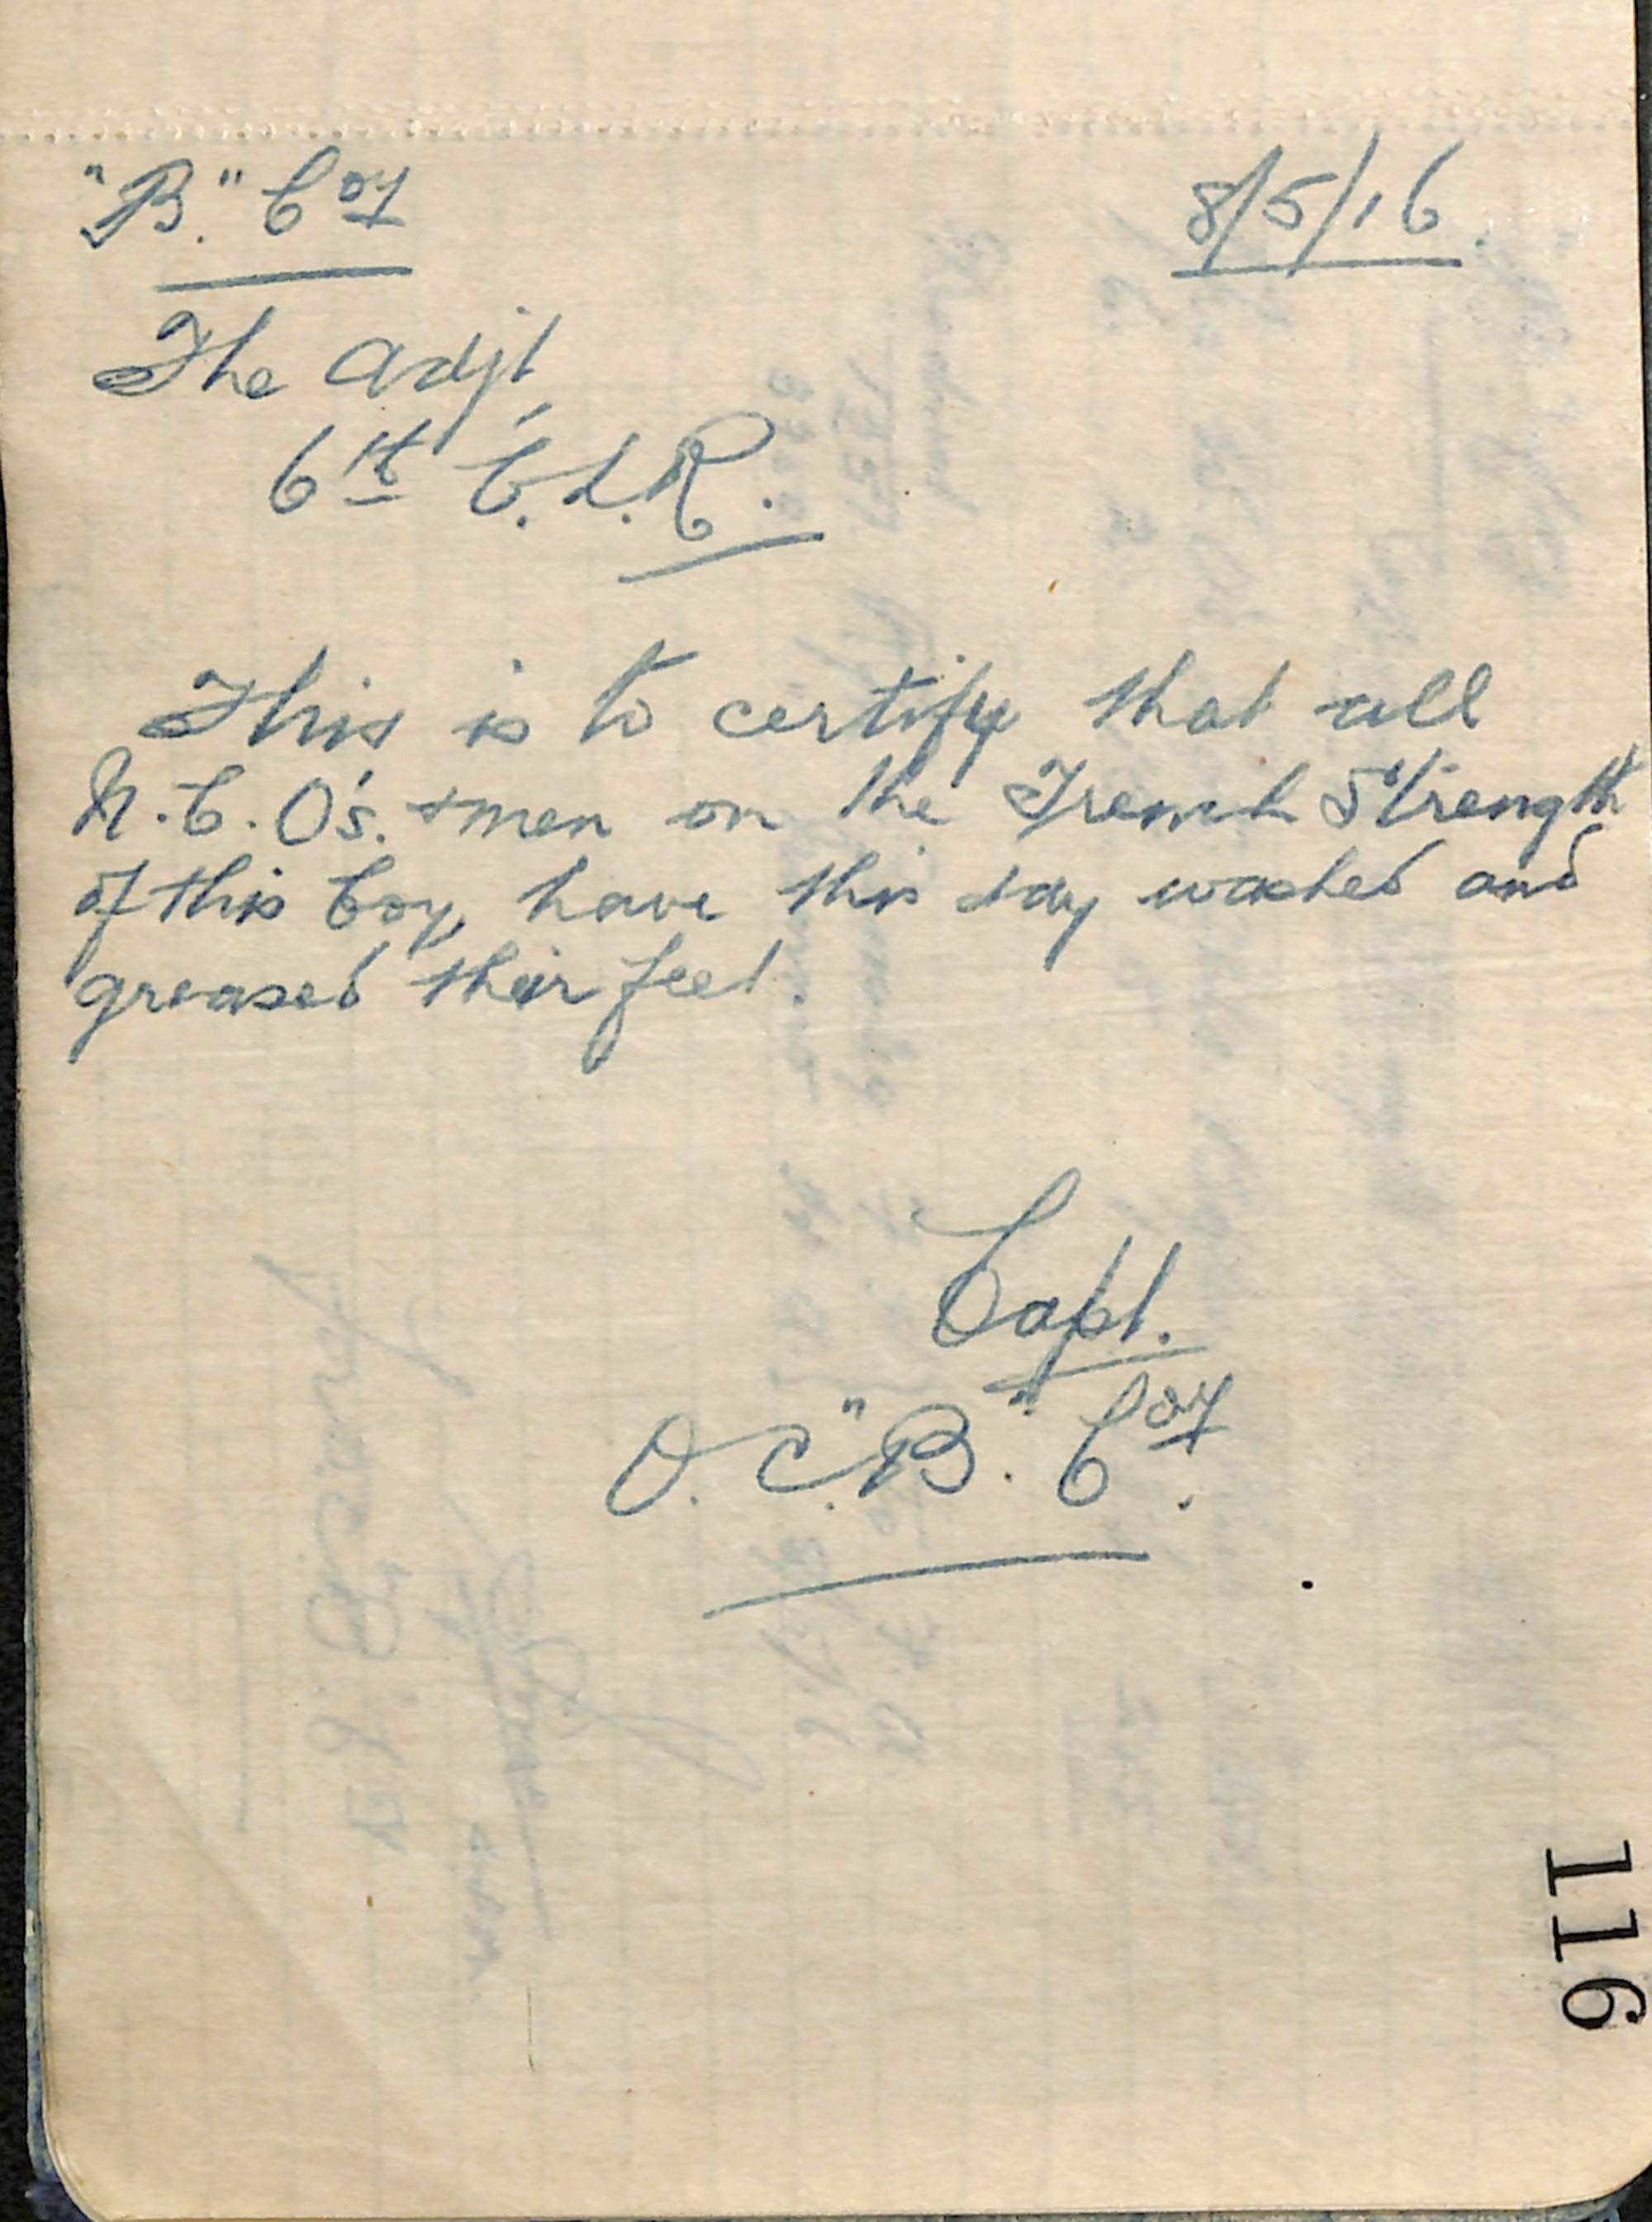 "B." Coy 8/5/16.
The Adjt,
6th C.L.R.
This is to certify that all
N.C.O's. + men on the Trench Strength
of this Coy, have this day washed and
greased their feet.
Capt.
O.C. "B". Coy.
116